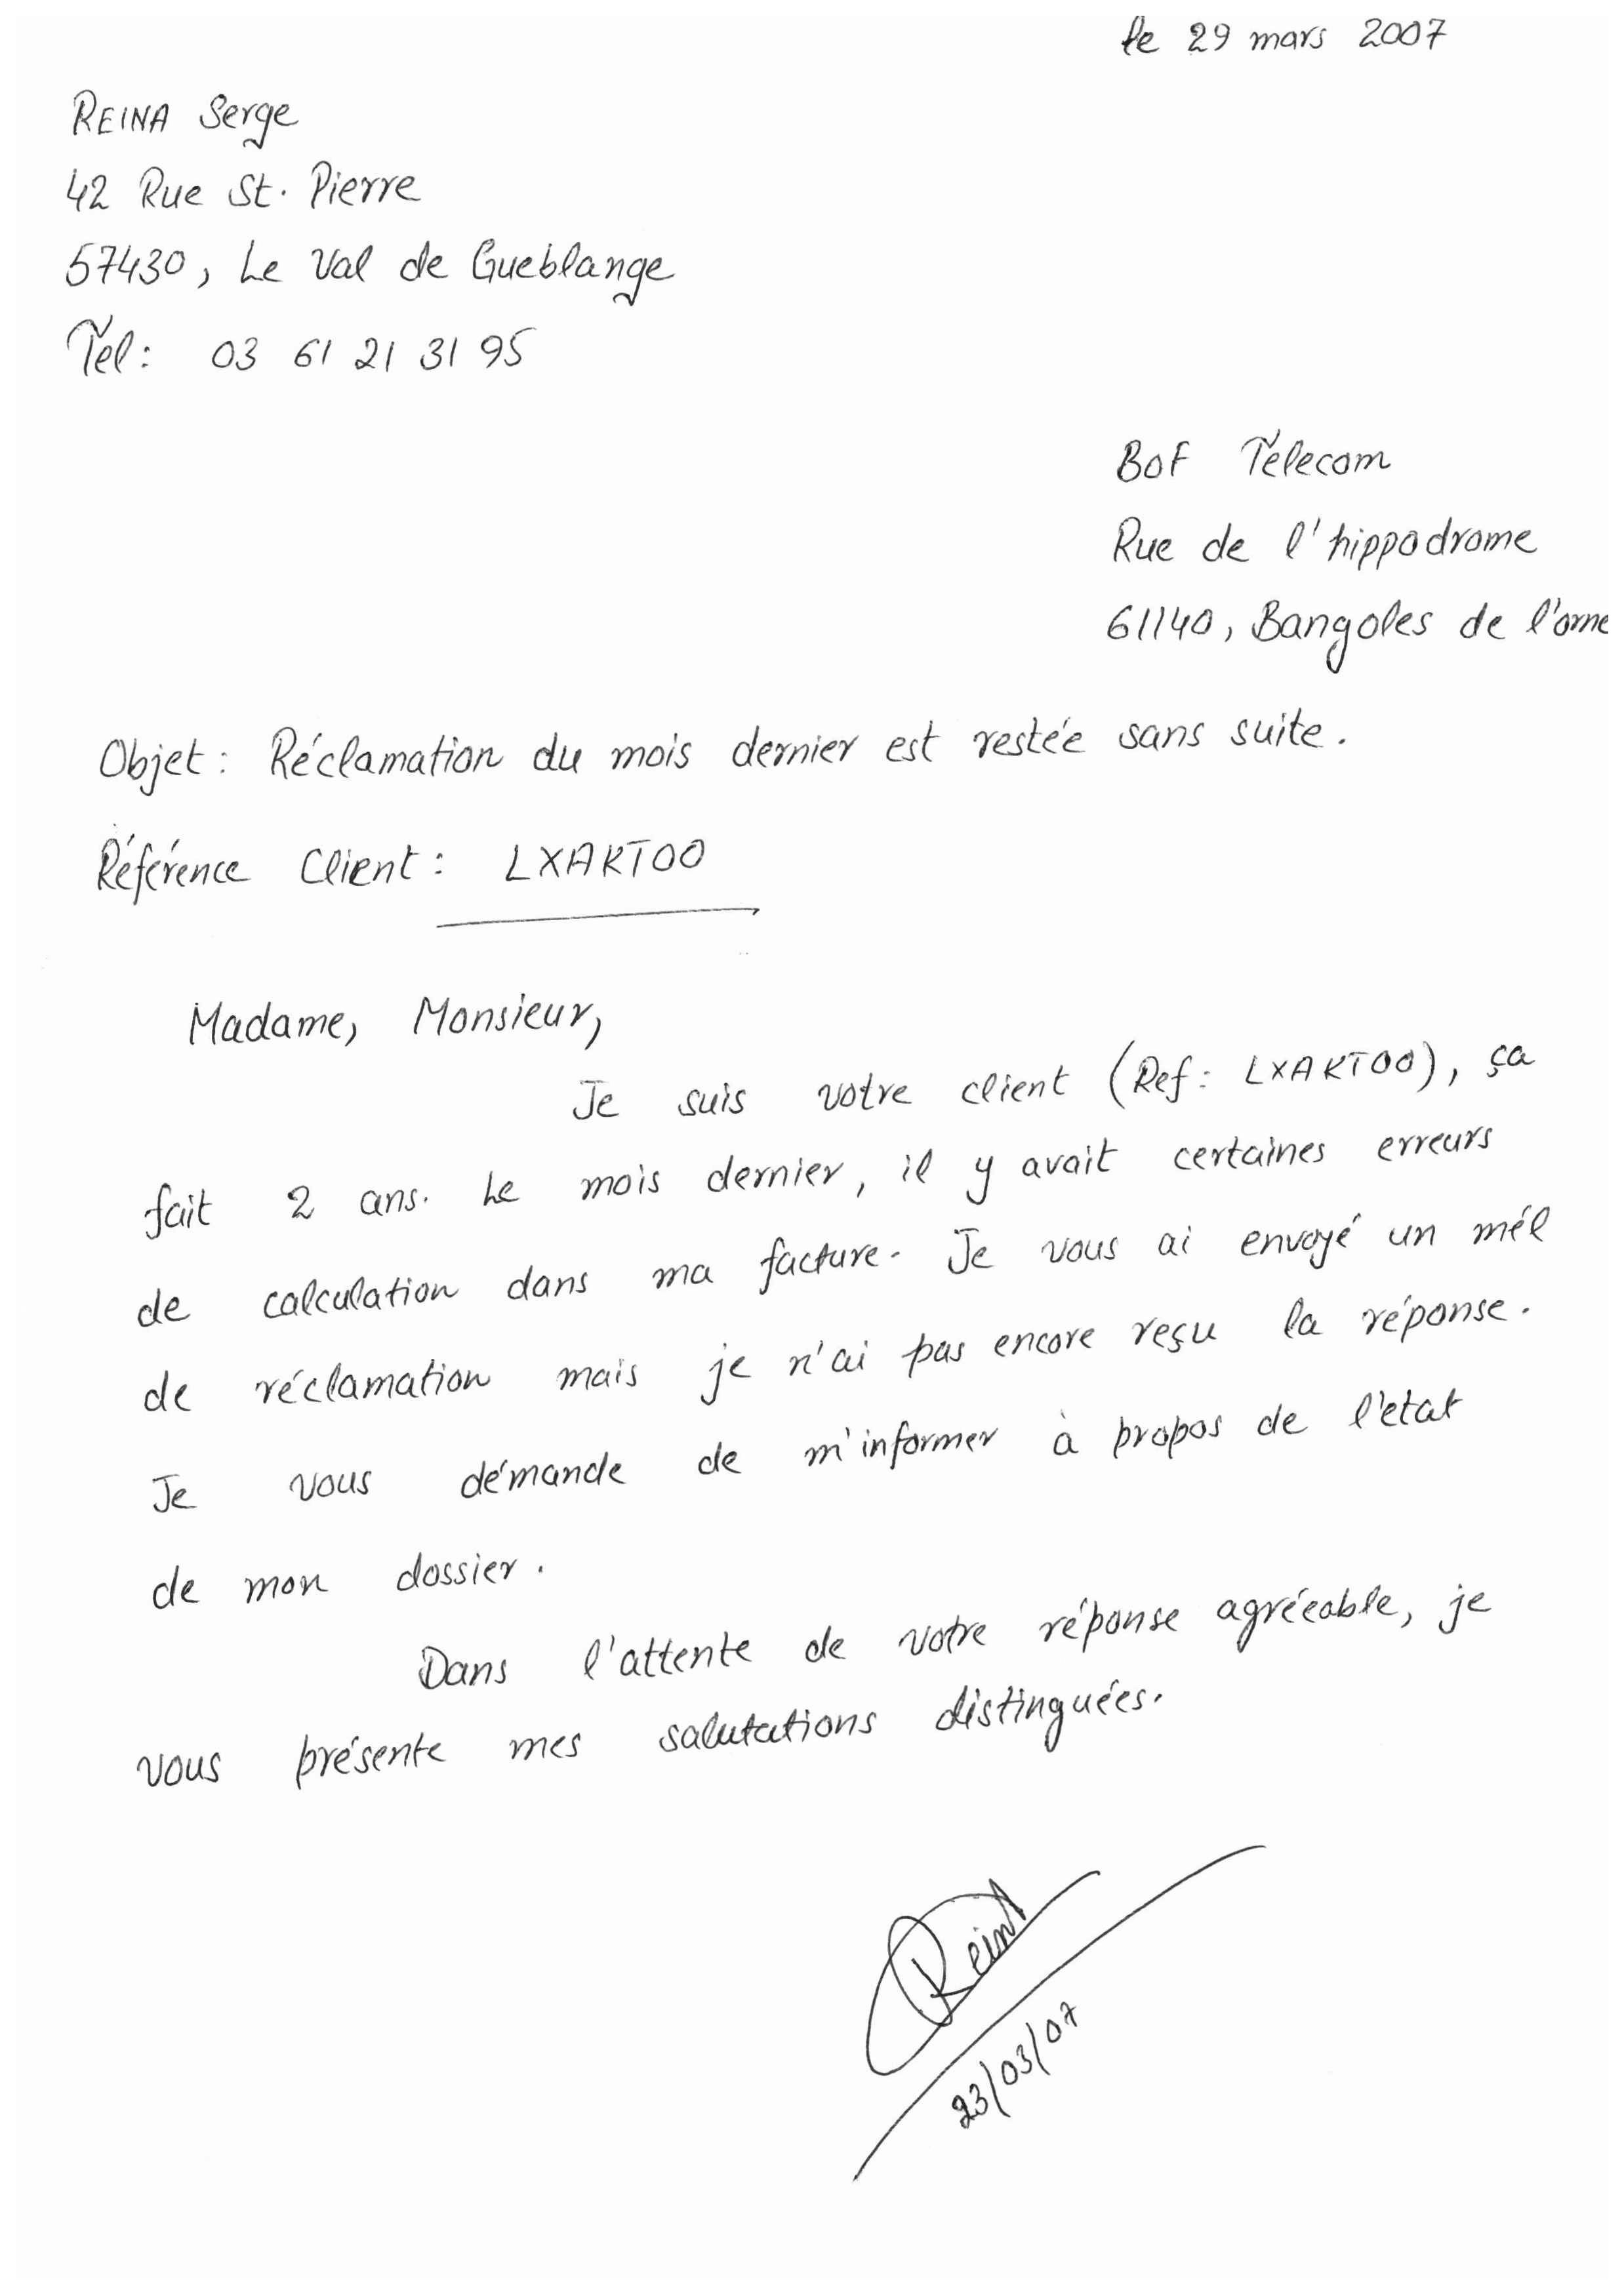 le 29 mars 2007
REINA Serge
42 Rue St. Pierre
57430, Le Val de Gueblange
Tél: 03 61 21 31 95
BOF Télecom
Rue de l'hippodrome
61140, Bangoles de l'orne
Objet: Réclamation du mois dernier est restée sans suite.
Référence Client: LXAKTOO
Madame, Monsieur,
Je suis votre client (Ref: LXAKTOO), ça
fait 2 ans. Le mois dernier, il y avait certaines erreurs
de calculation dans ma facture. Je vous ai envoyé un mél
de réclamation mais je n'ai pas encore reçu la réponse.
Je vous démande de m'informer à propos de l'état
de mon dossier.
Dans l'attente de votre réponse agréeable, je
vous présente mes salutations distinguées.
ReinA
23/03/07